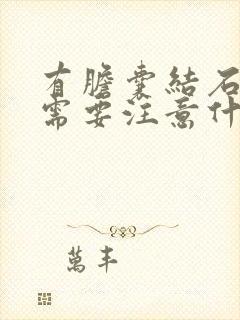 有膽囊結石
需要注意什
萬丰